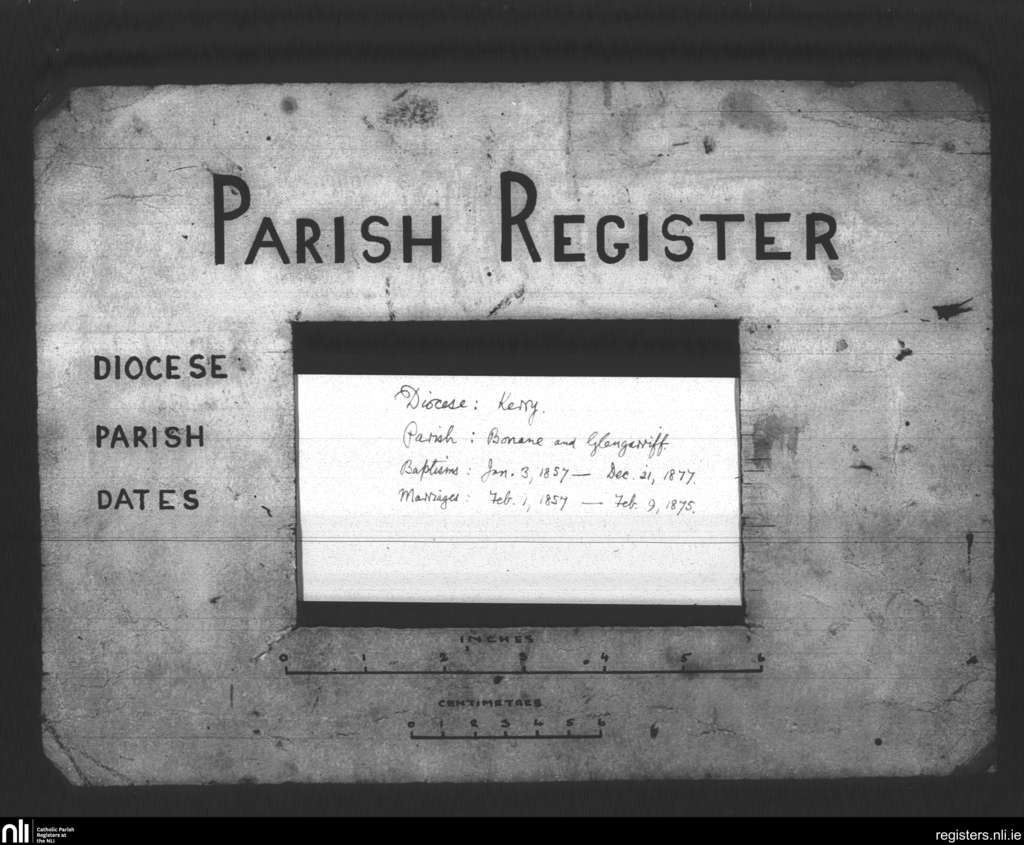 PARISH REGISTER
DIOCESE
PARISH
DATES
Diocese: Kerry.
Parish: Bonane and Glengarriff.
Baptisms: Jan. 3, 1857 — Dec. 21, 1877.
Marriages: Feb. 1, 1857 — Feb. 9, 1875.
INCHES
0 1 2 3 4 5 6
CENTIMETRES
0 1 2 3 4 5 6
nli
Catholic Parish
Registers at
the NLI
registers.nli.ie